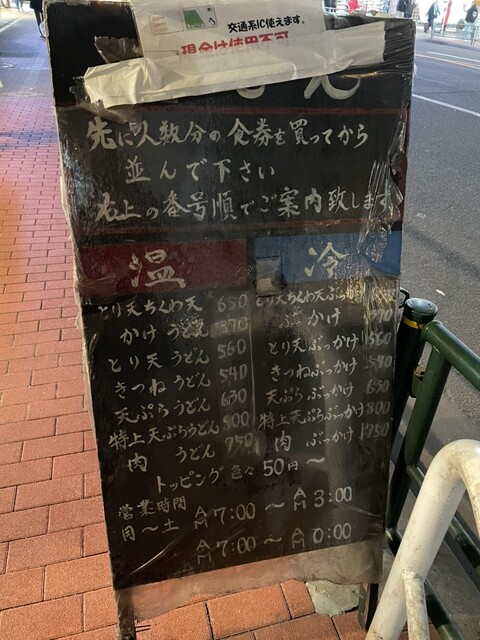 交通系ICも使えます。
現金は使用不可
先に人数分の食券を買ってから
並んで下さい
右上の番号順でご案内致します。
温
とり天ちくわ天 680
かけ うどん 370
とり天 うどん 560
きつね うどん 540
天ぷら うどん 630
特上天ぷらうどん 800
肉 うどん 750
冷
とり天ちくわ天ぶっかけ
ぶっかけ
とり天 ぶっかけ 560
きつね ぶっかけ 540
天ぷら ぶっかけ 630
特上天ぷらぶっかけ 800
肉 ぶっかけ 750
トッピング 色々 50円〜
営業時間
月〜土 AM 7:00 〜 AM 3:00
AM 7:00 〜 AM 0:00